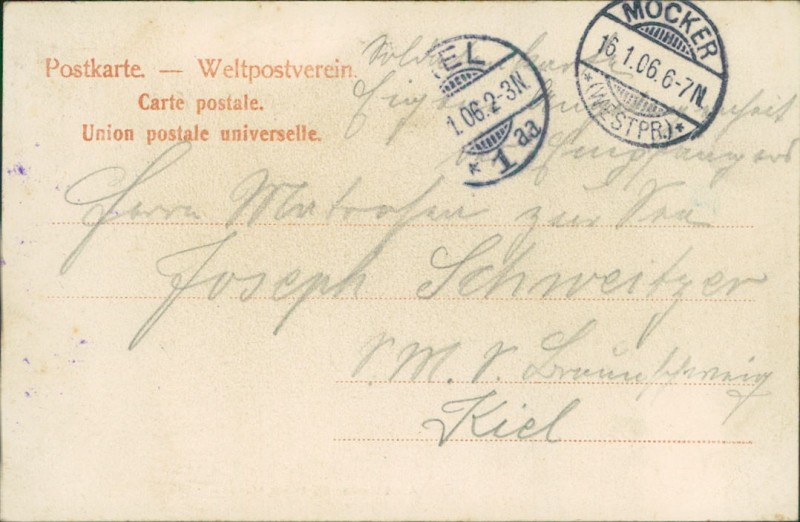 Postkarte. — Weltpostverein.
Carte postale.
Union postale universelle.
IEL
1.06.2-3N.
* 1 aa
MOCKER
16.1.06.6-7N.
*(WESTPR.)*
Eigene Angelegenheit
des Empfängers
Herrn Matrosen zur See
Joseph Schweitzer
S. M. S. Braunschweig
Kiel